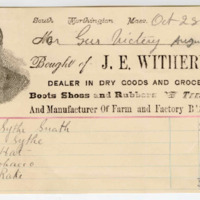 South Worthington Mass. Oct 23
Mr Gus
Bought of J. E. WITHER
DEALER IN DRY GOODS AND GROCE
Boots Shoes and Rubbers
And Manufacturer Of Farm and Factory B
Sythe Snath
" Sythe
Hat
Rake